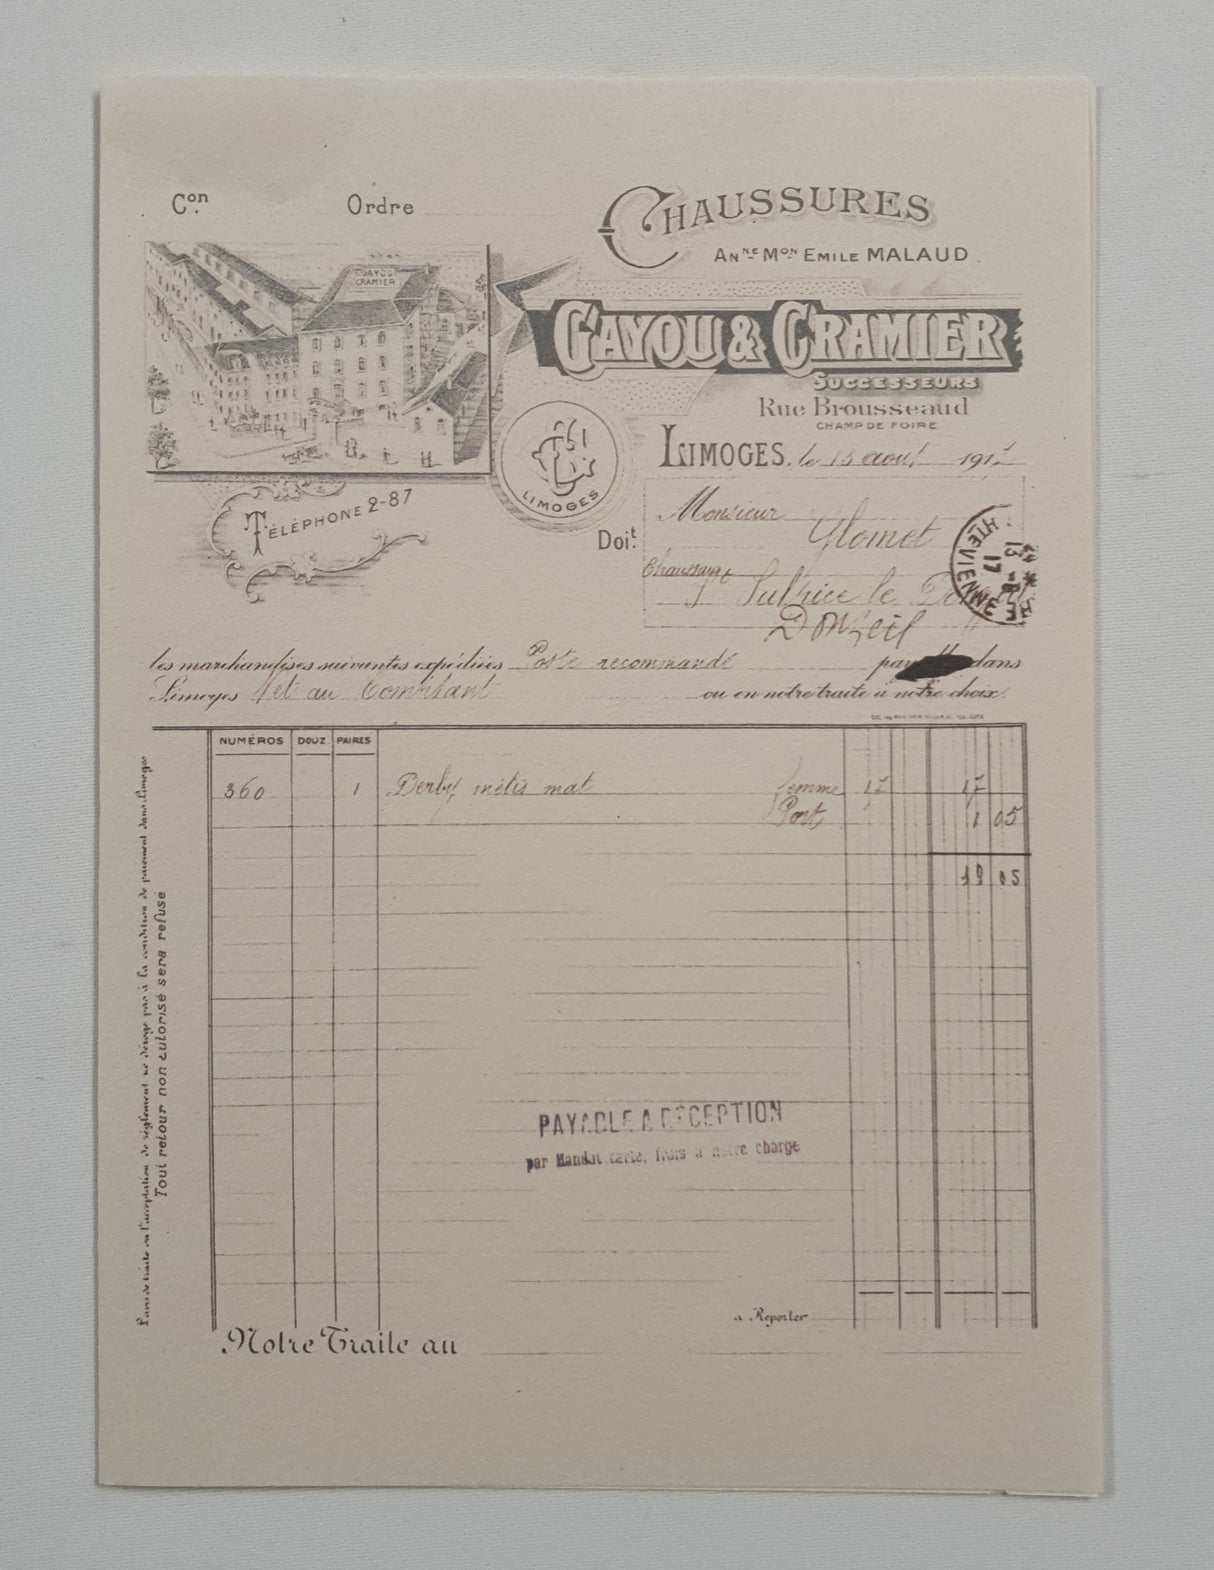 Con. Ordre
CHAUSSURES
ANNE MON EMILE MALAUD
GAYOU
CRAMIER
GAYOU & CRAMIER
SUCCESSEURS
Rue Brousseaud
CHAMP DE FOIRE
LIMOGES, le 13 aout 1917
LIMOGES
TÉLÉPHONE 2-87
Doit
Monsieur Glomet
Chaussures
St Sulpice le Donzeil
Donzeil
HTE VIENNE
13
17
les marchandises suivantes expédiées Poste recommandé dans
Limoges Net au Comptant ou en notre traite à notre choix.
NUMÉROS DOUZ. PAIRES
360 1 Derby métis mat femme 17 17
Port 1 05
18 05
L'avis de traite ou l'acceptation de règlement ne déroge pas à la condition de paiement dans Limoges
Tout retour non autorisé sera refusé
PAYABLE A RÉCEPTION
par Mandat carte, frais à notre charge
a Reporter
Notre Traite au